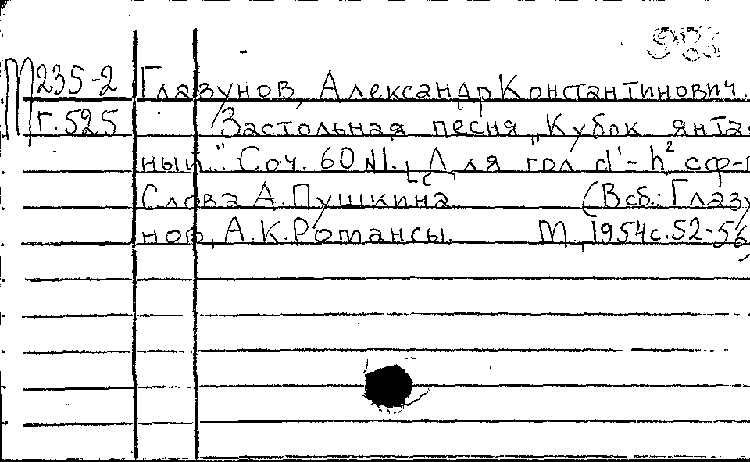 983
М235-2 Глазунов, Александр Константинович.
г.525 Застольная песня "Кубок янта
ный". Соч. 60 №1. Для гол d'-h² с ф-
Слова А. Пушкина (В сб: Глазу
нов, А.К. Романсы. М, 1954 с. 52-56